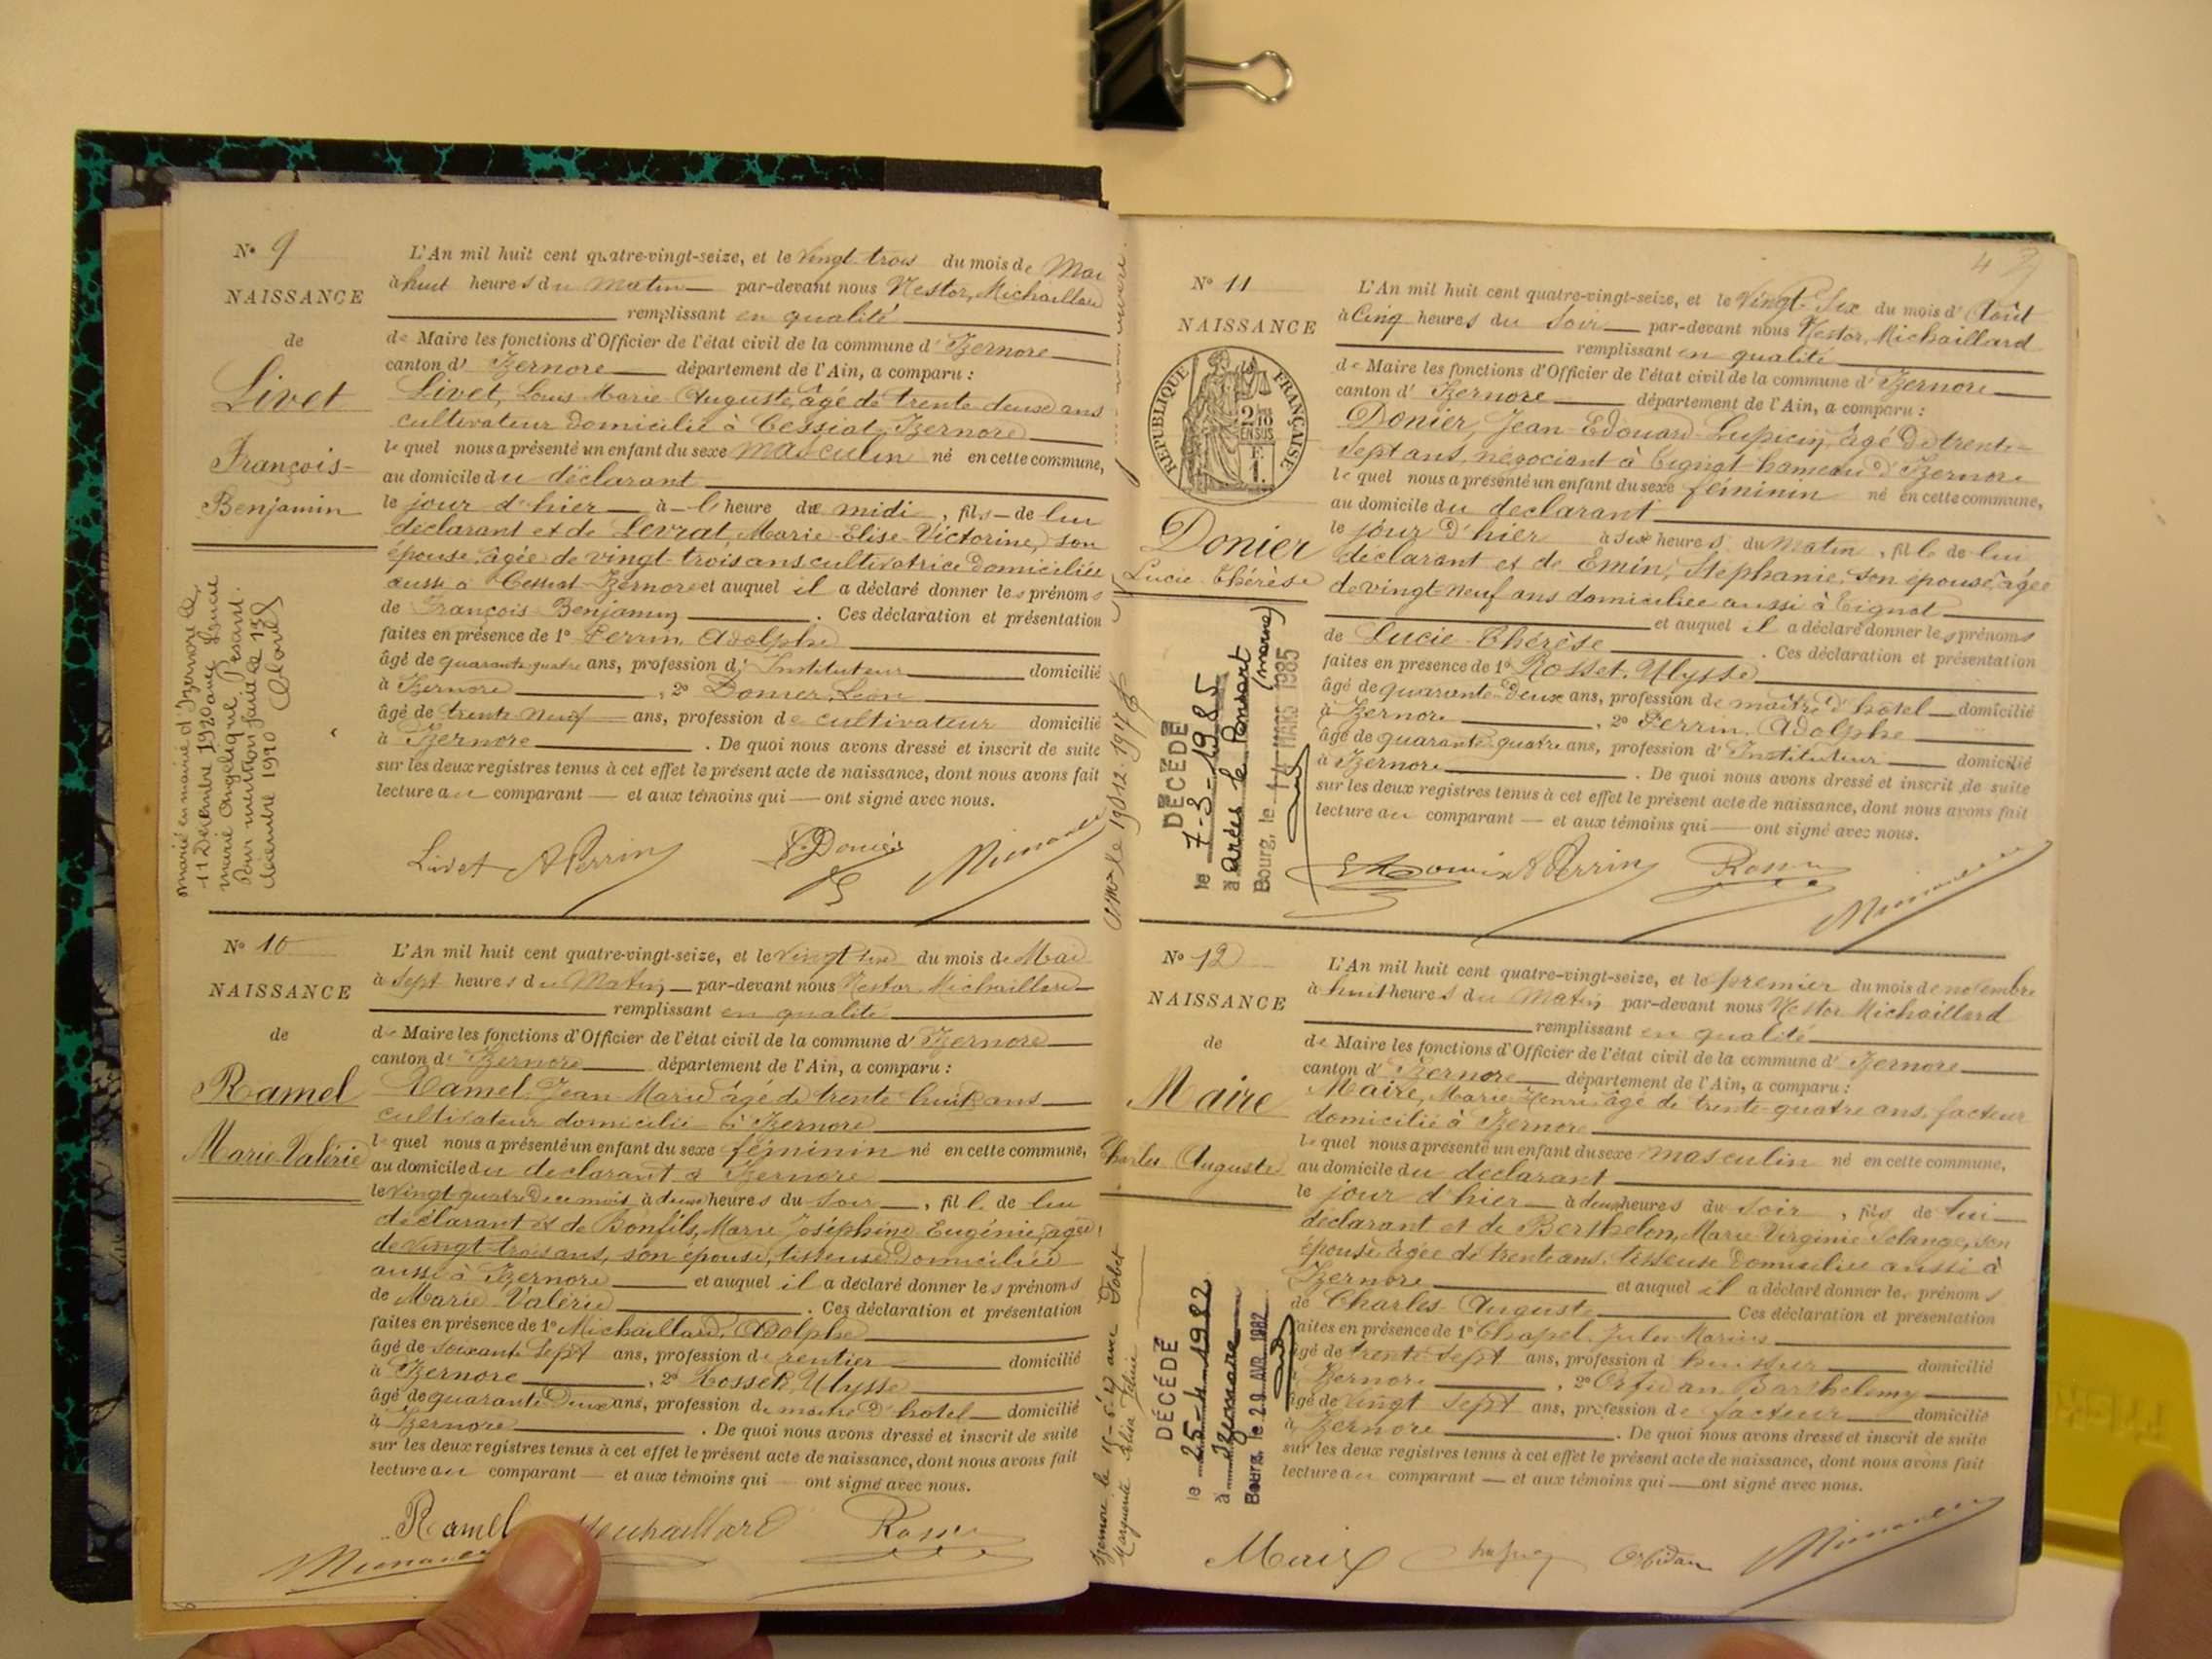 N° 9
NAISSANCE
de
Livet
François-
Benjamin
marié en mairie d'Izernore le
11 Décembre 1920 avec
marie Angélique
Pour mention faite le 13
décembre 1920
L'An mil huit cent quatre-vingt-seize, et le vingt trois du mois de Mai
à huit heures du matin par-devant nous Nestor, Michaillard
remplissant en qualité
de Maire les fonctions d'Officier de l'état civil de la commune d'Izernore
canton d'Izernore département de l'Ain, a comparu :
Livet, Louis Marie Auguste, âgé de trente deux ans
cultivateur domicilié à Cessiat, Izernore
le quel nous a présenté un enfant du sexe masculin né en cette commune,
au domicile du déclarant
le jour d'hier à l'heure de midi, fils de lui
déclarant et de Levrat, Marie-Elise-Victorine, son
épouse, âgée de vingt-trois ans cultivatrice domiciliée
aussi à Cessiat-Izernore et auquel il a déclaré donner les prénoms
de François Benjamin. Ces déclaration et présentation
faites en présence de 1° Perrin, Adolphe
âgé de quarante quatre ans, profession d'Instituteur domicilié
à Izernore, 2° Donier, Léon
âgé de trente neuf ans, profession de cultivateur domicilié
à Izernore. De quoi nous avons dressé et inscrit de suite
sur les deux registres tenus à cet effet le présent acte de naissance, dont nous avons fait
lecture au comparant et aux témoins qui ont signé avec nous.
Livet A Perrin Donier
N° 10
NAISSANCE
de
Ramel
Marie-Valérie
L'An mil huit cent quatre-vingt-seize, et le vingt six du mois de Mai
à sept heures du Matin par-devant nous Nestor Michaillard
remplissant en qualité
de Maire les fonctions d'Officier de l'état civil de la commune d'Izernore
canton d'Izernore département de l'Ain, a comparu :
Ramel, Jean Marie âgé de trente huit ans
cultivateur domicilié à Izernore
le quel nous a présenté un enfant du sexe féminin né en cette commune,
au domicile du déclarant à Izernore
le vingt quatre de ce mois à deux heures du soir, fille de lui
déclarant et de Bonfils, Marie Joséphine Eugénie, âgée
de vingt-trois ans, son épouse, tisseuse domiciliée
aussi à Izernore et auquel il a déclaré donner les prénoms
de Marie Valérie. Ces déclaration et présentation
faites en présence de 1° Michaillard, Adolphe
âgé de soixante sept ans, profession de rentier domicilié
à Izernore, 2° Rosset, Ulysse
âgé de quarante deux ans, profession de maître d'hôtel domicilié
à Izernore. De quoi nous avons dressé et inscrit de suite
sur les deux registres tenus à cet effet le présent acte de naissance, dont nous avons fait
lecture au comparant et aux témoins qui ont signé avec nous.
Ramel Michaillard
4
N° 11
NAISSANCE
RÉPUBLIQUE FRANÇAISE
Donier
Lucie Thérèse
DÉCÉDÉ
le 7-3-1985
(marne)
Bourg, le MARS 1985
L'An mil huit cent quatre-vingt-seize, et le vingt-six du mois d'Août
à cinq heures du soir par-devant nous Nestor, Michaillard
remplissant en qualité
de Maire les fonctions d'Officier de l'état civil de la commune d'Izernore
canton d'Izernore département de l'Ain, a comparu :
Donier, Jean-Edouard-Lupicin, âgé de trente-
sept ans, négociant à Tignat hameau d'Izernore
le quel nous a présenté un enfant du sexe féminin né en cette commune,
au domicile du déclarant
le jour d'hier à six heures du matin, fille de lui
déclarant et de Emin, Stéphanie, son épouse, âgée
de vingt-neuf ans domiciliée aussi à Tignat
et auquel il a déclaré donner les prénoms
de Lucie-Thérèse. Ces déclaration et présentation
faites en présence de 1° Rosset, Ulysse
âgé de quarante-deux ans, profession de maître d'hôtel domicilié
à Izernore, 2° Perrin, Adolphe
âgé de quarante quatre ans, profession d'Instituteur domicilié
à Izernore. De quoi nous avons dressé et inscrit de suite
sur les deux registres tenus à cet effet le présent acte de naissance, dont nous avons fait
lecture au comparant et aux témoins qui ont signé avec nous.
A Perrin
N° 12
NAISSANCE
de
Maire
Charles Auguste
DÉCÉDÉ
le 25-4-1982
à Izernore
Bourg, le 29 AVR 1982
L'An mil huit cent quatre-vingt-seize, et le premier du mois de novembre
à huit heures du Matin par-devant nous Nestor Michaillard
remplissant en qualité
de Maire les fonctions d'Officier de l'état civil de la commune d'Izernore
canton d'Izernore département de l'Ain, a comparu :
Maire, Marie-Henri âgé de trente-quatre ans, facteur
domicilié à Izernore
le quel nous a présenté un enfant du sexe masculin né en cette commune,
au domicile du déclarant
le jour d'hier à deux heures du soir, fils de lui
déclarant et de Berthelon, Marie Virginie Solange, son
épouse âgée de trente ans, tisseuse domiciliée aussi à
Izernore et auquel il a déclaré donner les prénoms
de Charles Auguste Ces déclaration et présentation
faites en présence de 1° Chapel, Jules Marius
âgé de trente sept ans, profession d'huissier domicilié
à Izernore, 2° Orfidan Barthelemy
âgé de vingt sept ans, profession de facteur domicilié
à Izernore. De quoi nous avons dressé et inscrit de suite
sur les deux registres tenus à cet effet le présent acte de naissance, dont nous avons fait
lecture au comparant et aux témoins qui ont signé avec nous.
Maire Orfidan